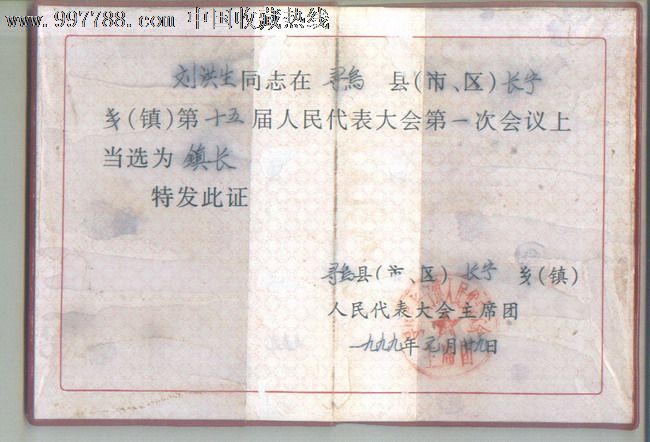 www.997788.com 中国收藏热线
刘洪生同志在 寻乌 县(市、区)长宁
乡(镇)第十五届人民代表大会第一次会议上
当选为 鎮长
特发此证
寻乌县(市、区) 长宁 乡(镇)
人民代表大会主席团
一九九九年元月廿九日